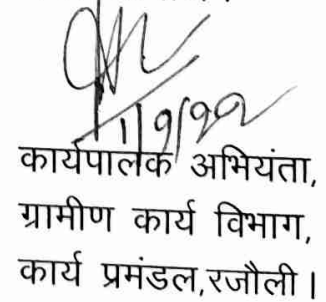 1/9/22
कार्यपालक अभियंता,
ग्रामीण कार्य विभाग,
कार्य प्रमंडल,रजौली।